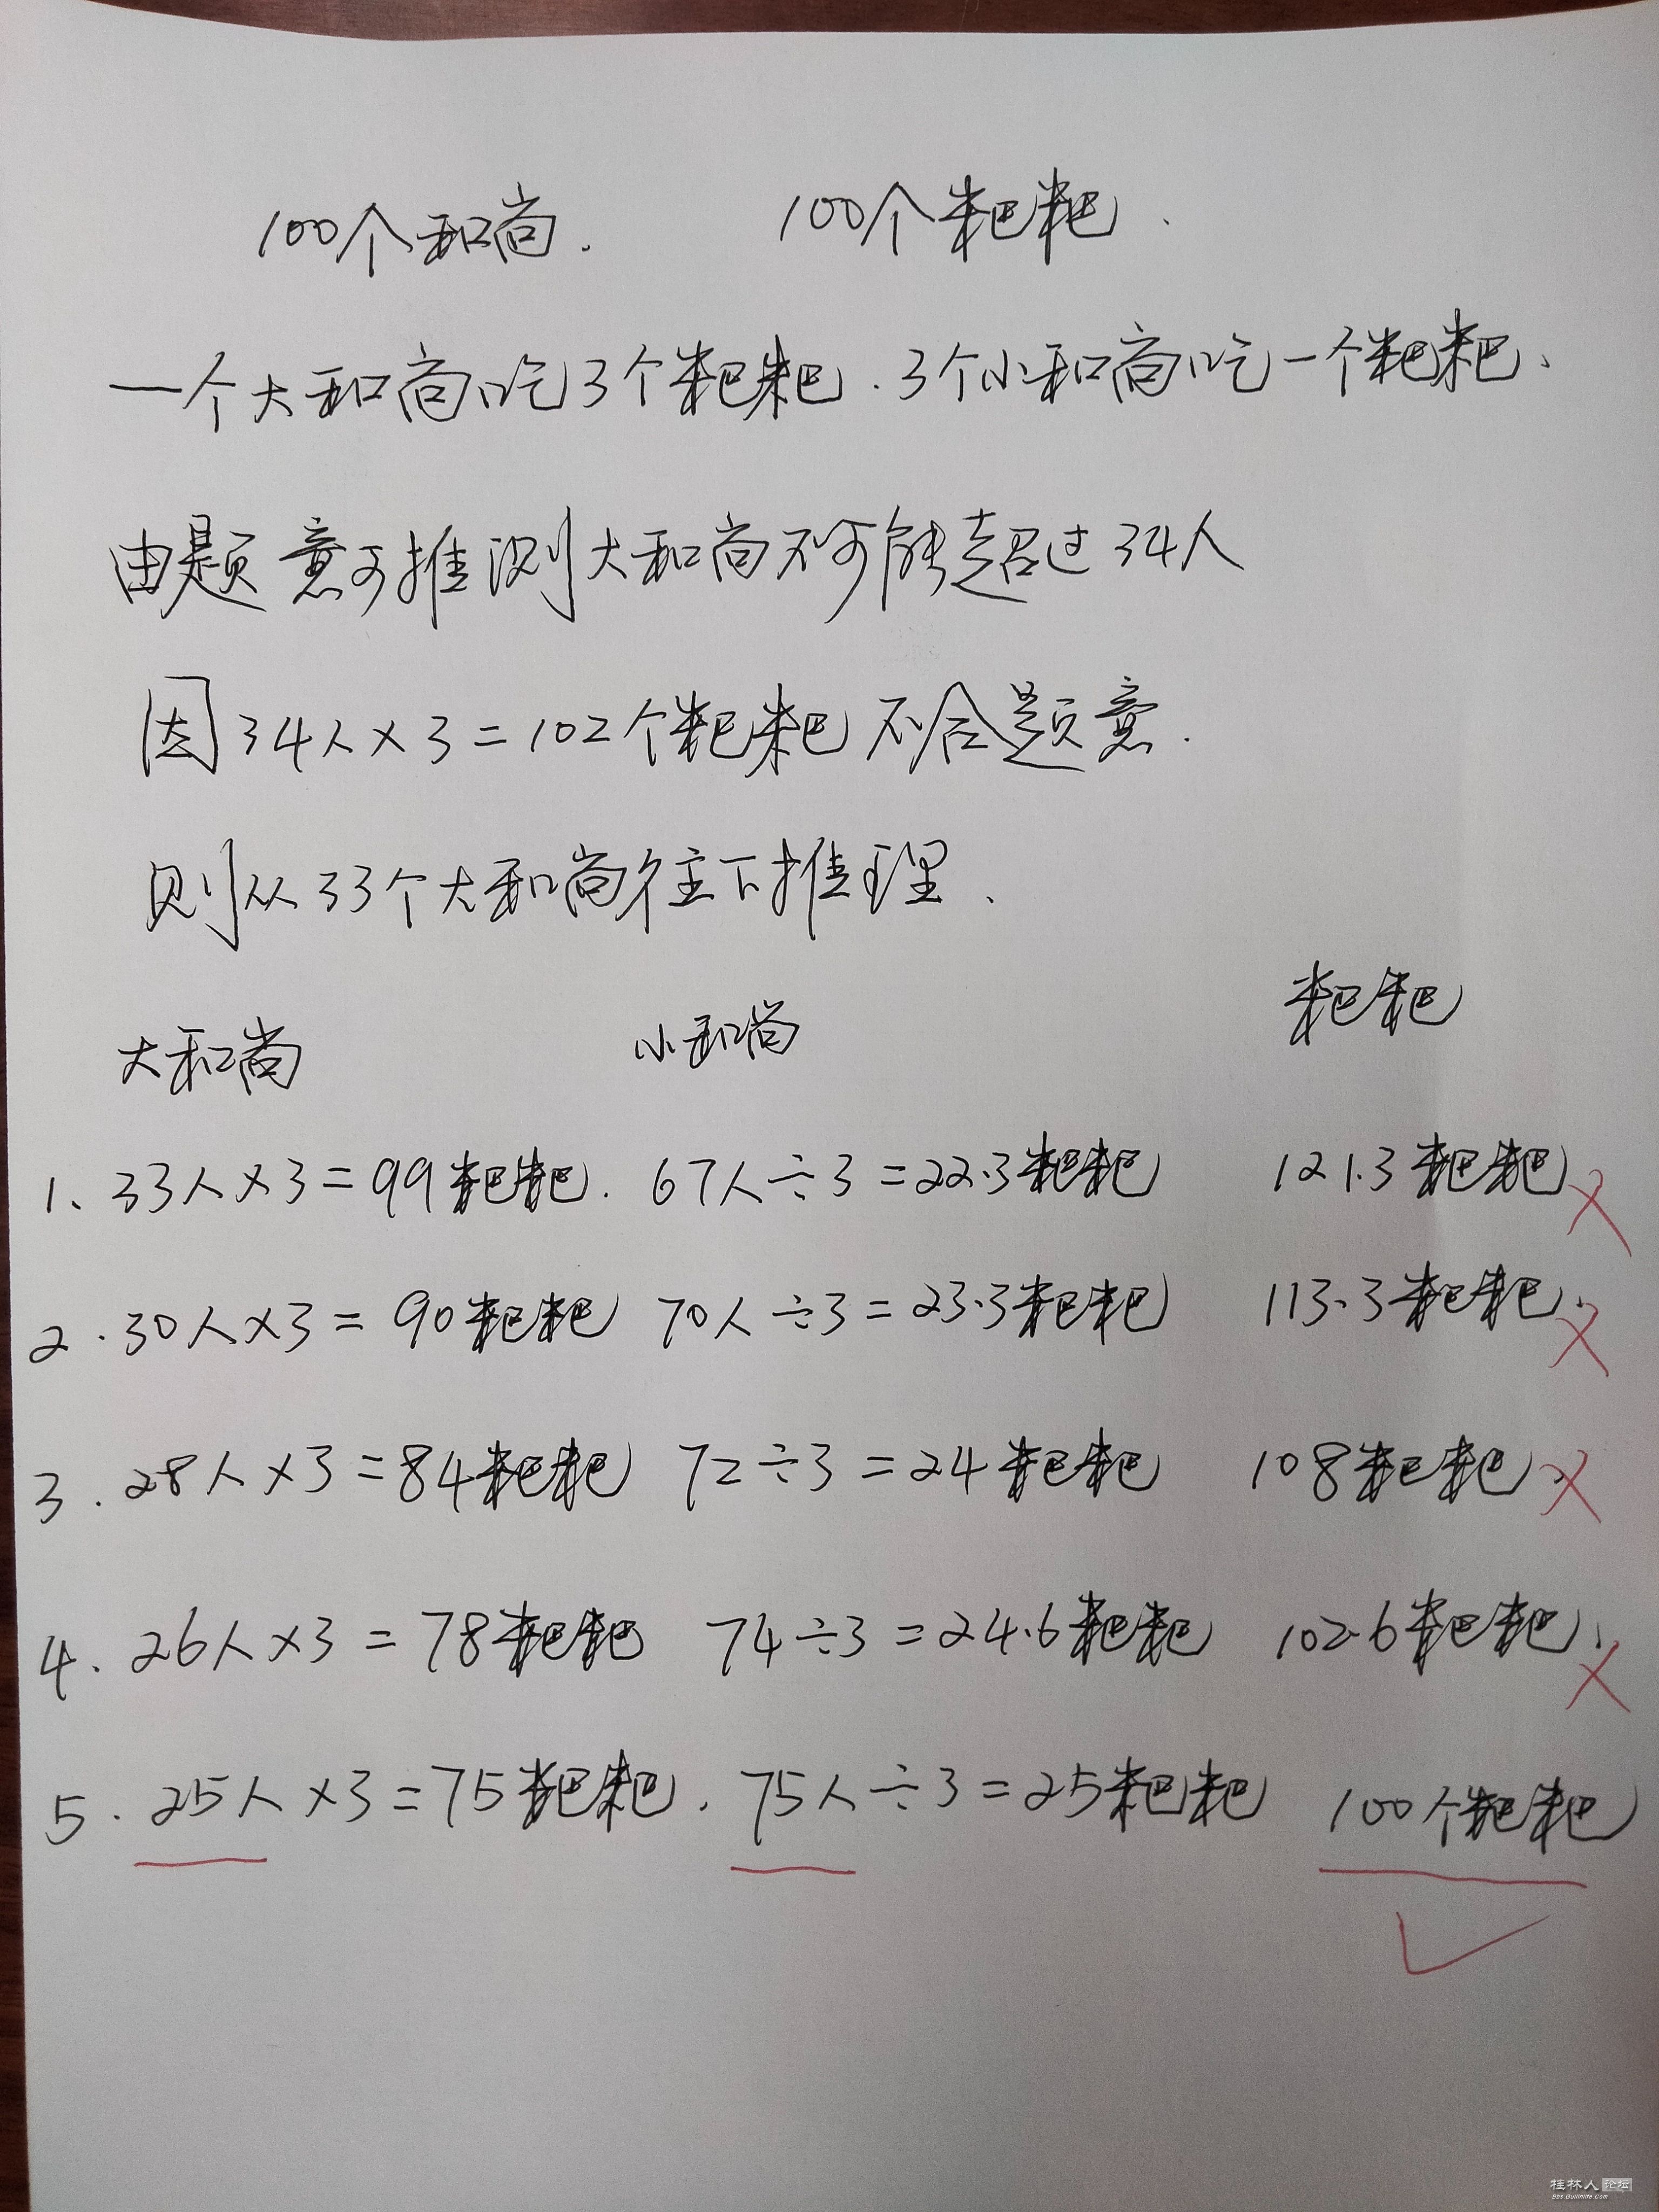 100个和尚. 100个粑粑.
一个大和尚吃3个粑粑.3个小和尚吃一个粑粑.
由题意可推测大和尚不可能超过34人
因34人×3=102个粑粑不合题意.
则从33个大和尚往下推理.
大和尚 小和尚 粑粑
1. 33人×3=99粑粑. 67人÷3=22.3粑粑 121.3粑粑 ×
2. 30人×3=90粑粑 70人÷3=23.3粑粑 113.3粑粑. ×
3. 28人×3=84粑粑 72÷3=24粑粑 108粑粑. ×
4. 26人×3=78粑粑 74÷3=24.6粑粑 102.6粑粑. ×
5. 25人×3=75粑粑. 75人÷3=25粑粑 100个粑粑 ✓
桂林人论坛
Bbs.Guilinlife.Com